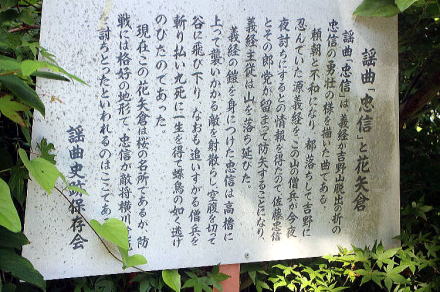 謡曲「忠信」と花矢倉
謡曲「忠信」は、義経が吉野山脱出の折の
忠信の勇壮の様を描いた曲である。
頼朝と不和になり、都落ちして吉野に
忍んでいた源義経をこの山の僧兵が今夜
夜討ちにするとの情報を得たので佐藤忠信
とその郎党が留まって防矢することになり、
義経主従は山を落ち延びた。
義経の鎧を身につけた忠信は高櫓に
上って襲いかかる敵を射散らし空腹を切って
谷に飛び下り、なおも追いすがる僧兵を
斬り払い九死に一生を得て蝶鳥の如く逃げ
のびたのであった。
現在この花矢倉は桜の名所であるが、防
戦には格好の地形で、忠信が敵将横川
を討ちとったといわれるのはここであ
謡曲史跡保存会